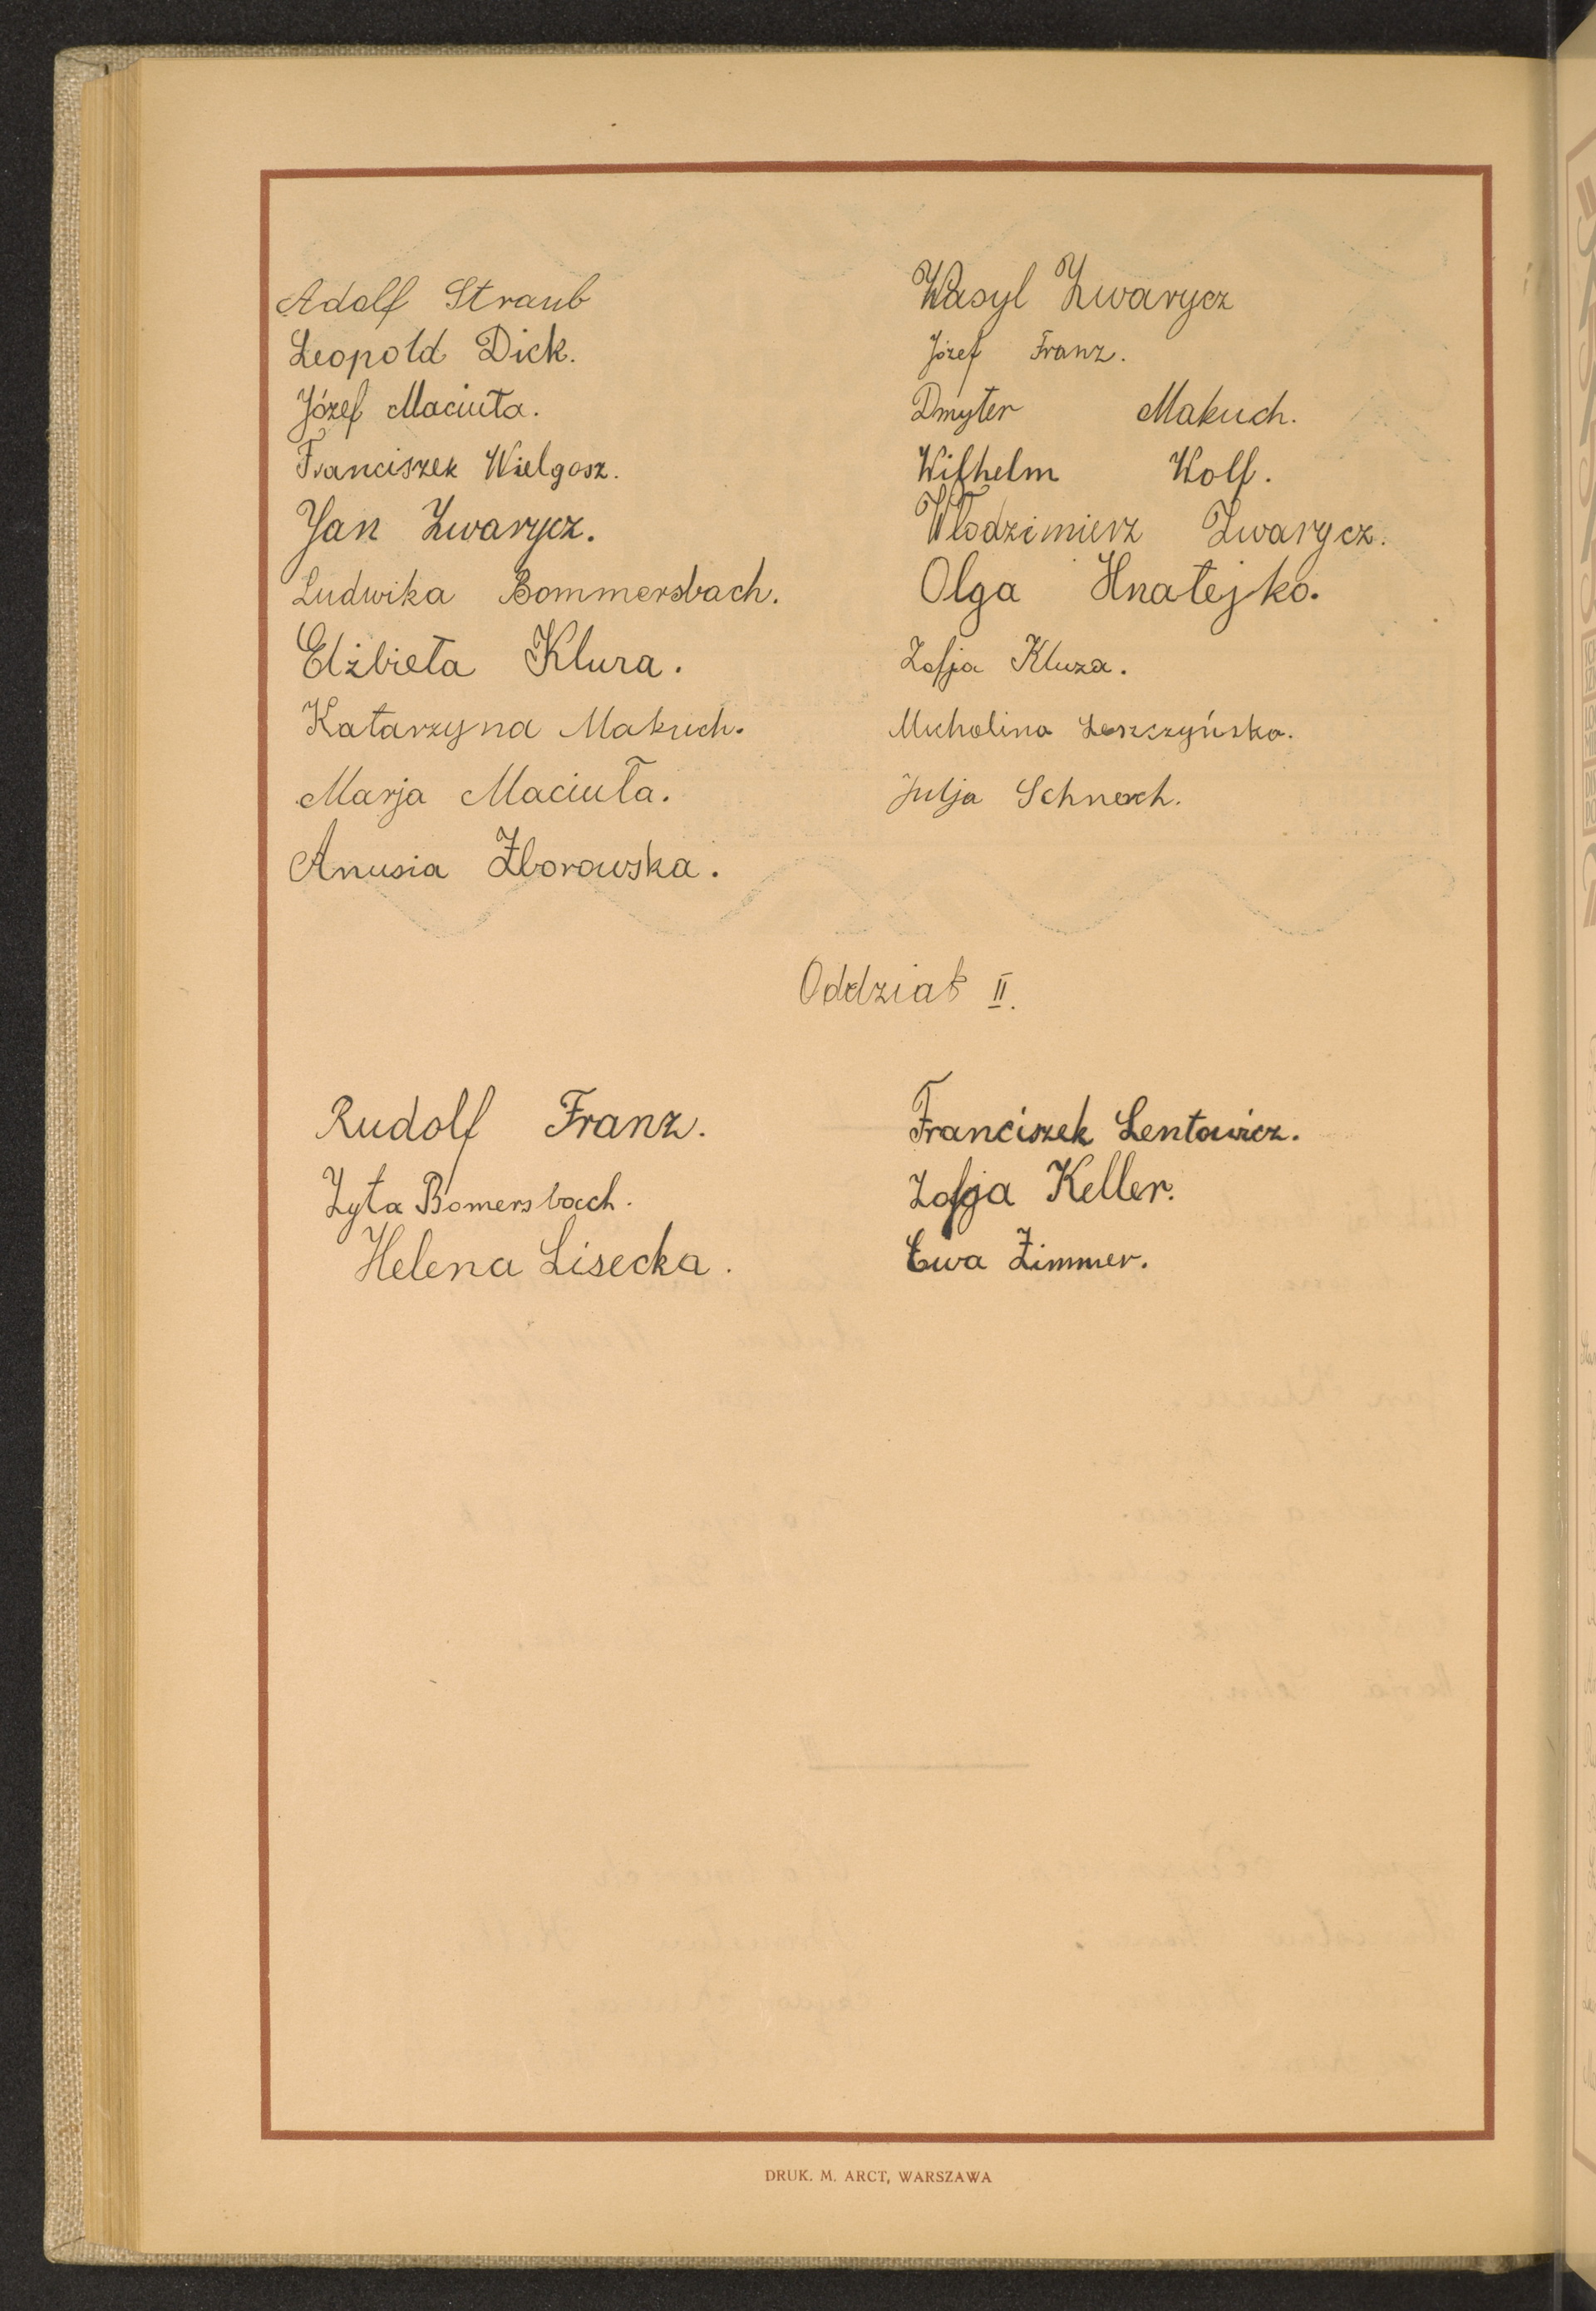 Adolf Straub
Leopold Dick.
Józef Maciuła.
Franciszek Wielgosz.
Jan Zwarycz.
Ludwika Bommersbach.
Elżbieta Klura.
Katarzyna Makuch.
Marja Maciuła.
Anusia Zborowska.
Wasyl Zwarycz
Józef Franz.
Dmyter Makuch.
Wilhelm Wolf.
Włodzimierz Zwarycz.
Olga Hnatejko.
Zofja Kluza.
Micholina Leszczyńska.
Julja Schnerch.
Oddział II.
Rudolf Franz.
Zyta Bomersbach.
Helena Lisecka.
Franciszek Lentowicz.
Zofja Keller.
Ewa Zimmer.
DRUK. M. ARCT, WARSZAWA